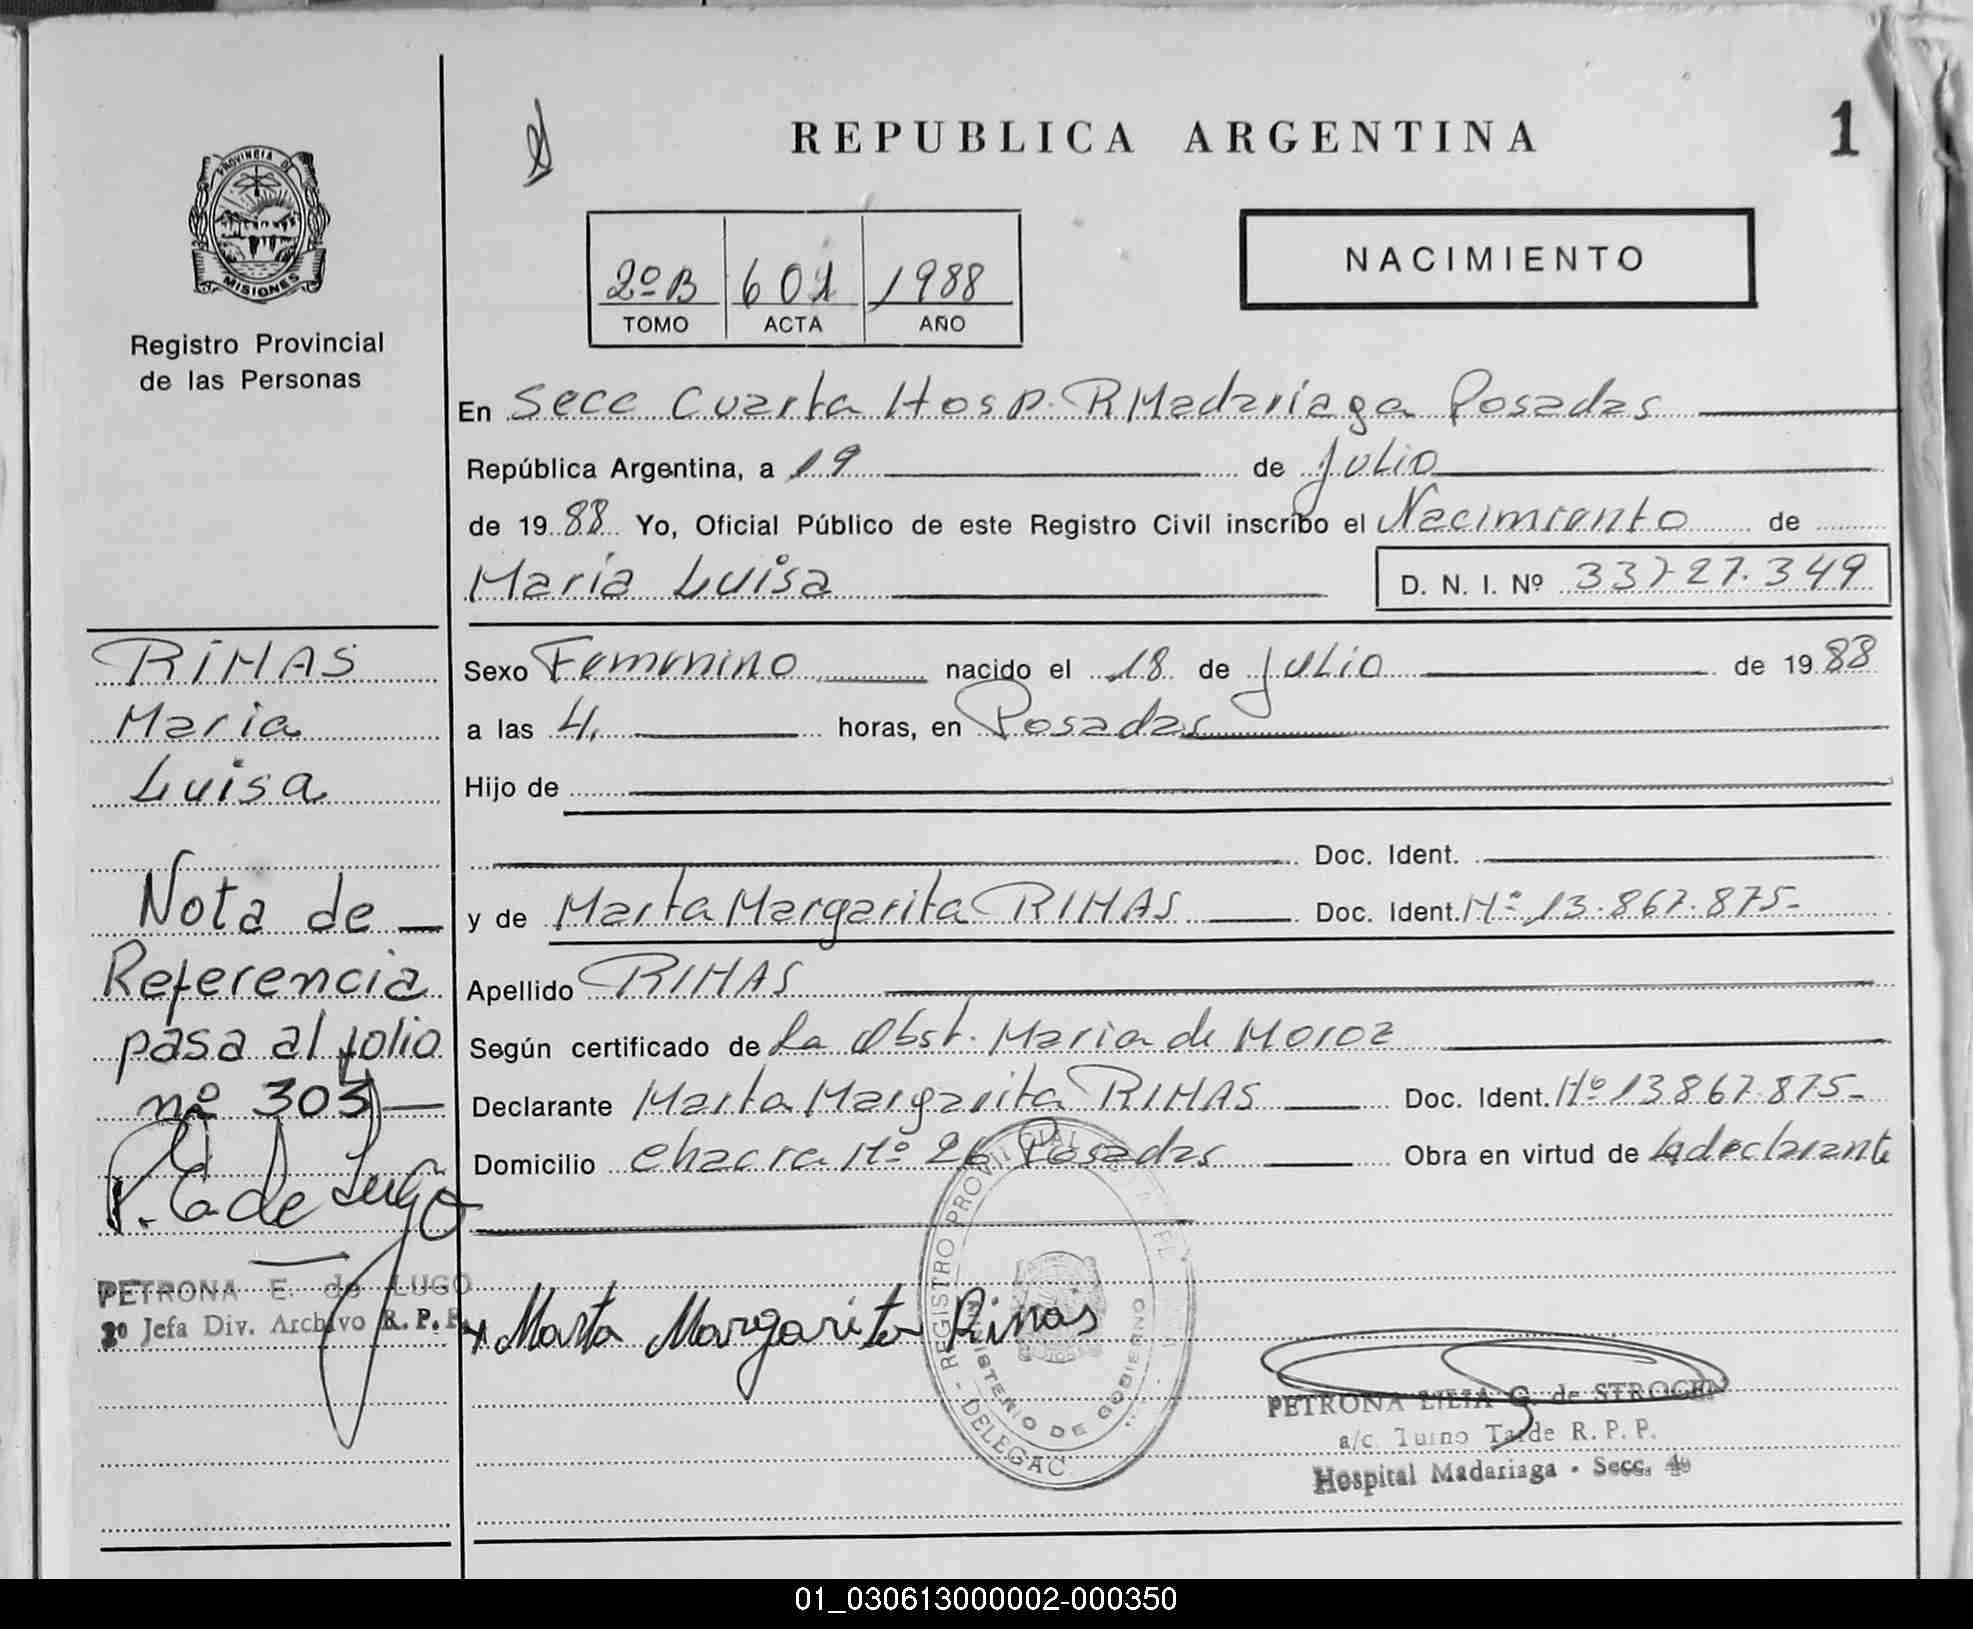 REPUBLICA ARGENTINA
1
PROVINCIA DE
MISIONES
Registro Provincial
de las Personas
2º B 601 1988
TOMO ACTA AÑO
NACIMIENTO
En Secc Cuarta Hosp. R Madariaga Posadas
República Argentina, a 19 de Julio
de 19 88 Yo, Oficial Público de este Registro Civil inscribo el Nacimiento de
Maria Luisa D. N. I. Nº 33.727.349
RIMAS
Maria
Luisa
Nota de
Referencia
pasa al folio
nº 303
P. E. de Lugo
PETRONA E. de LUGO
2º Jefa Div. Archivo R. P. P.
Sexo Femenino nacido el 18 de Julio de 19 88
a las 4. horas, en Posadas
Hijo de
Doc. Ident.
y de Marta Margarita RIMAS Doc. Ident. Nº 13.867.875-
Apellido RIMAS
Según certificado de La Obst. Maria de Moroz
Declarante Marta Margarita RIMAS Doc. Ident. Nº 13867.875-
Domicilio chacra Nº 26 Posadas Obra en virtud de la declarante
Marta Margarita Rimas
REGISTRO PROVINCIAL
MINISTERIO DE GOBIERNO
PETRONA LILIA G. de STROGEN
a/c. Turno Tarde R. P. P.
Hospital Madariaga - Secc. 4º
01_030613000002-000350